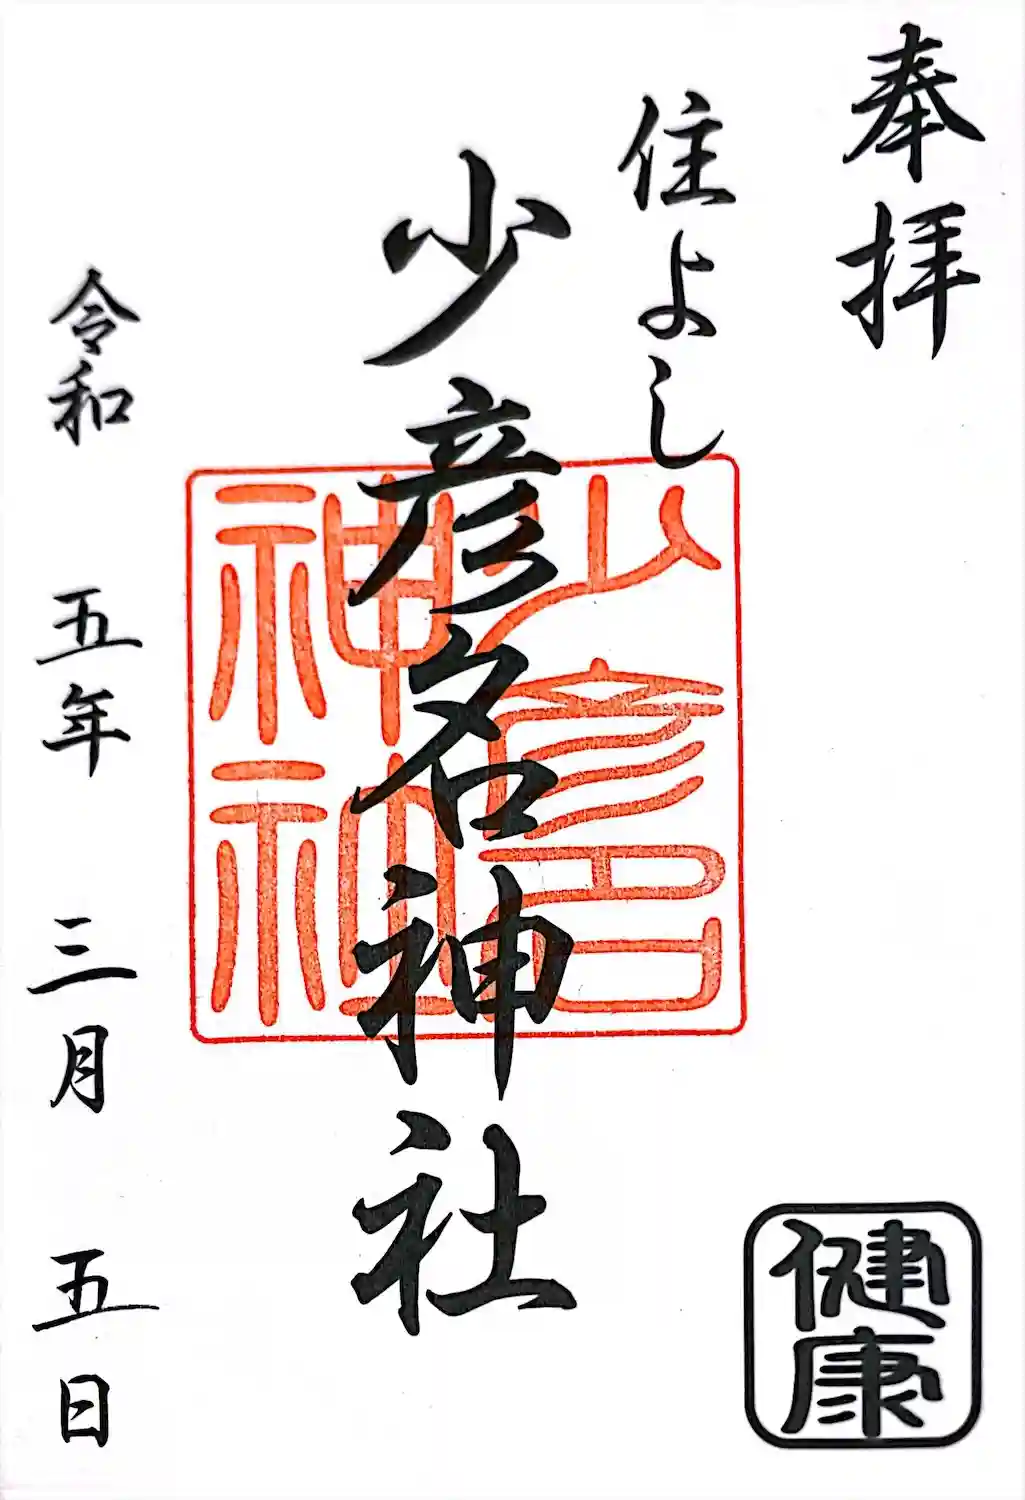 奉拝
健康
住よし
少彦名神社
少彦名
神社
令和 五年 三月 五日